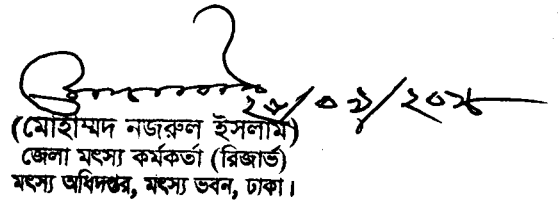 (মোহাম্মদ নজরুল ইসলাম)
জেলা মৎস্য কর্মকর্তা (রিজার্ভ)
মৎস্য অধিদপ্তর, মৎস্য ভবন, ঢাকা।